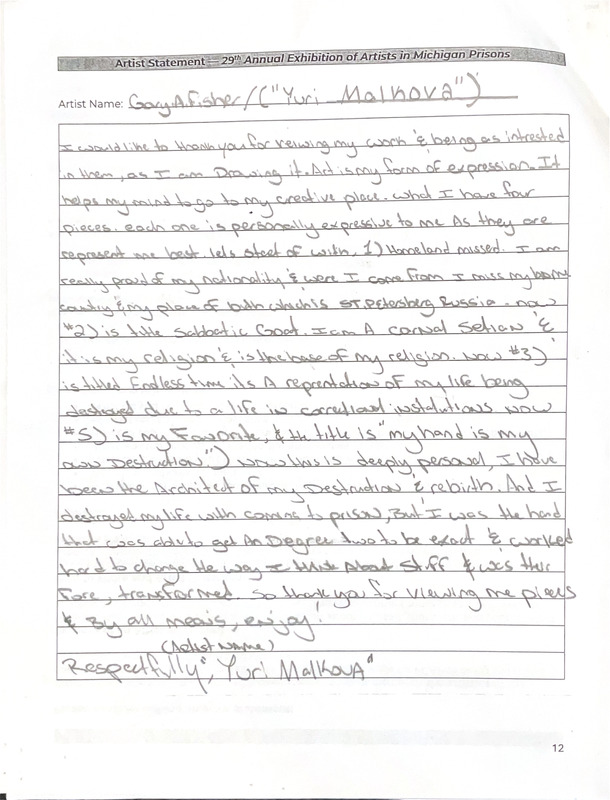 Artist Statement — 29th Annual Exhibition of Artists in Michigan Prisons
Artist Name: Gary.A.Fisher/("Yuri Malkova")
I would like to thank you for veiwing my work & being as intrested
in them, as I am Drawing it. Art is my form of expression. It
helps my mind to go to my creative place. what I have four
pieces. each one is personally expressive to me As they are
represent me best. lets steat of with, 1) Homeland missed. I am
really proud of my nationality & were I come from I miss my home
country & my place of birth which is ST.Petersberg Russia. now
#2) is title Sabbatic Goat. I am A carnal Setian &
it is my religion & is the base of my religion. Now #3)
is titled Endless time its A reprentation of my life being
destroyed due to a life in correctional instalutions now
#5) is my Favorite, & the title is "my hand is my
own Destruction") Now this is deeply personal, I have
been the Architect of my Destruction & rebirth. And I
destroyed my life with coming to prison, But I was the hand
that was able to get An Degree two to be exact & worked
hard to change the way I think About Stuff & was ther
Fore, transformed. So thank you for viewing me pieces
& By all means, enjoy!
(Artist Name)
Respectfully", Yuri Malkova"
12